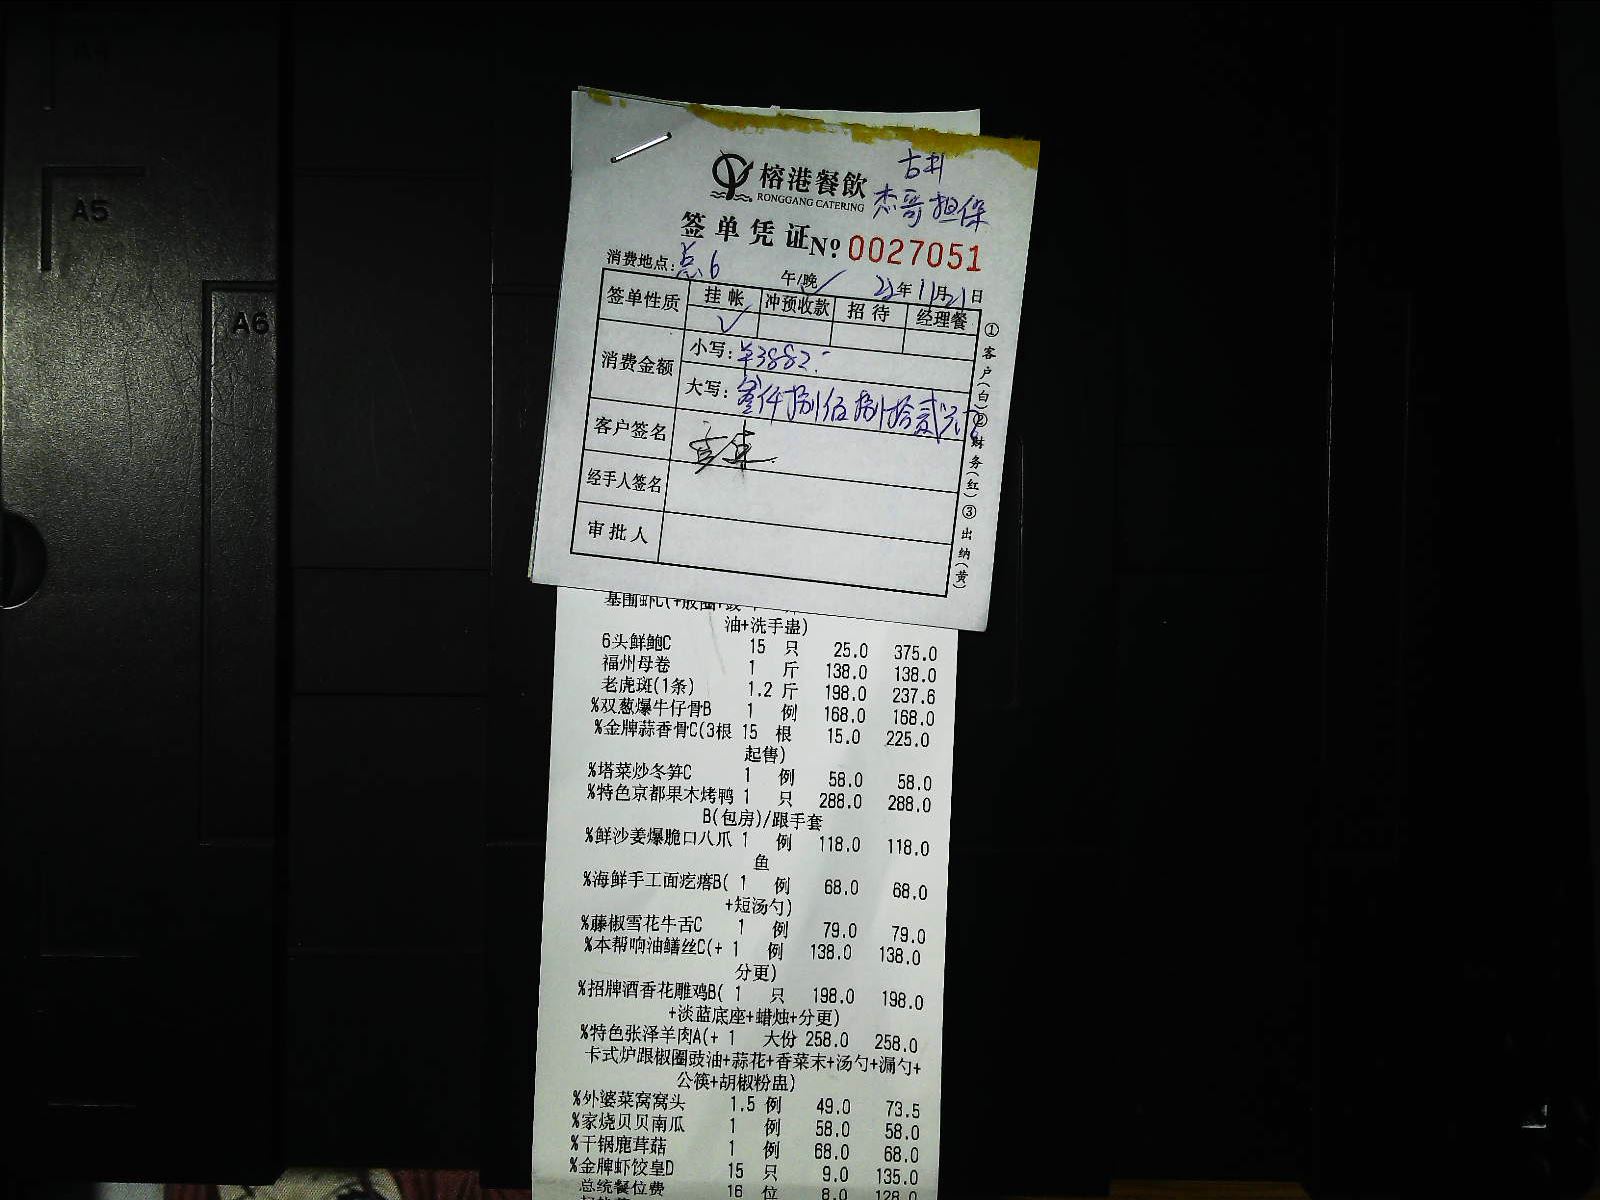 A4
A5
A6
古井
榕港餐飲
RONGGANG CATERING
杰哥担保
签单凭证 № 0027051
消费地点：总6 午/晚✓ 22年11月21日
签单性质 挂帐 冲预收款 招待 经理餐
✓
消费金额 小写：¥3882
大写：叁仟捌佰捌拾贰元
客户签名
经手人签名
审批人
①客户(白)②财务(红)③出纳(黄)
油+洗手盅)
6头鲜鲍C 15 只 25.0 375.0
福州母卷 1 斤 138.0 138.0
老虎斑(1条) 1.2 斤 198.0 237.6
%双葱爆牛仔骨B 1 例 168.0 168.0
%金牌蒜香骨C(3根 15 根 15.0 225.0
起售)
%塔菜炒冬笋C 1 例 58.0 58.0
%特色京都果木烤鸭 1 只 288.0 288.0
B(包房)/跟手套
%鲜沙姜爆脆口八爪 1 例 118.0 118.0
鱼
%海鲜手工面疙瘩B( 1 例 68.0 68.0
+短汤勺)
%藤椒雪花牛舌C 1 例 79.0 79.0
%本帮响油鳝丝C(+ 1 例 138.0 138.0
分更)
%招牌酒香花雕鸡B( 1 只 198.0 198.0
+淡蓝底座+蜡烛+分更)
%特色张泽羊肉A(+ 1 大份 258.0 258.0
卡式炉跟椒圈豉油+蒜花+香菜末+汤勺+漏勺+
公筷+胡椒粉盅)
%外婆菜窝窝头 1.5 例 49.0 73.5
%家烧贝贝南瓜 1 例 58.0 58.0
%干锅鹿茸菇 1 例 68.0 68.0
%金牌虾饺皇D 15 只 9.0 135.0
总统餐位费 16 位 8.0 128.0